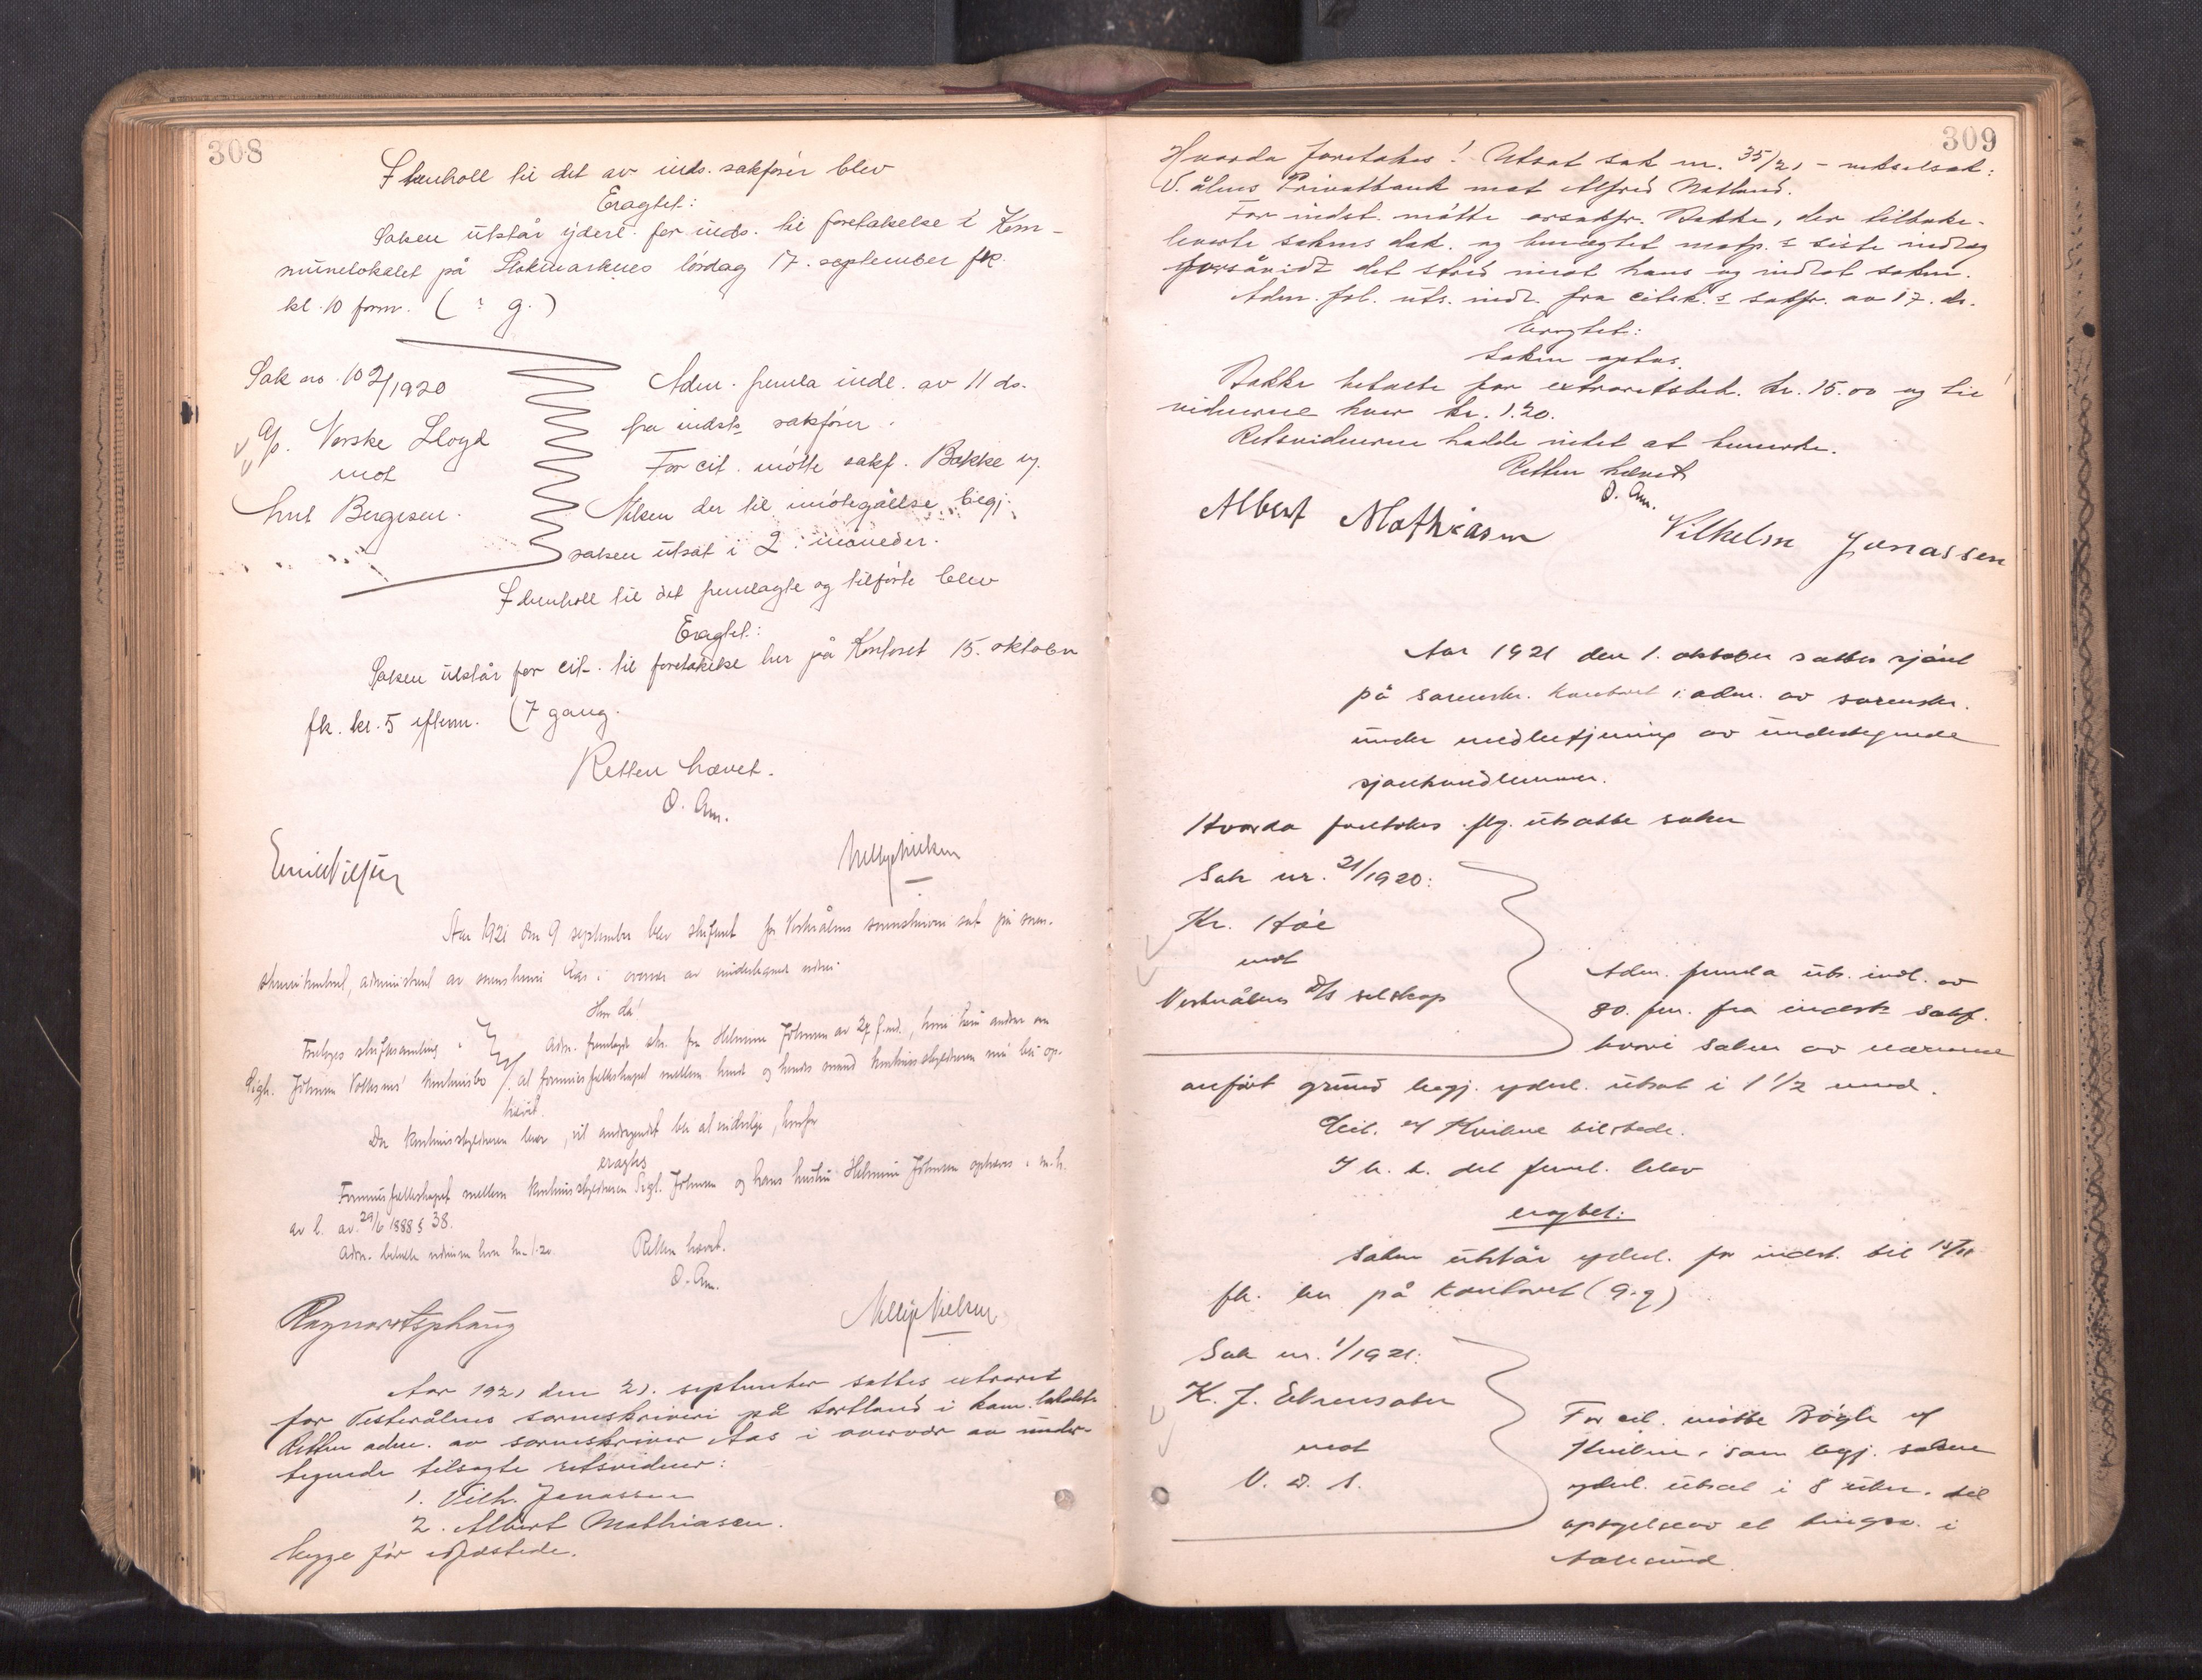 308
I henholl til det av inds. sakfører blev
Eragtet:
Saken utstår yderl. for inds. til foretakelse i Kom-
munelokalet på Stokmarknes lördag 17. september fk.
kl. 10 form. (? g.)
Sak no. 102/1920
A/s. Norske Lloyd
mot
Bergesen.
Adm. fremla indl. av 11 ds.
fra indst. sakförer.
For cit. mötte sakf. Bakke og
Nilsen der til imötegåelse begj.
saken utsat i 2 måneder.
I henholl til det fremlagte og tilförte blev
Eragtet:
Saken utstår for cit. til foretakelse her på Kontoret 15. oktober
fk. kl. 5 efterm. (7 gang.
Retten hævet.
O. Am.
Emil Nilsen
Nelly Nielsen
Aar 1921 den 9 september blev skifteret for Vesterålens sorenskriveri sat på soren-
skriverkontoret, administreret av sorenskriver Aas i overvær av undertegnede vidner.
Hvorda
Foretoges skiftesamling i
Sigh. Johnsen Voksnes' konkursbo
Adm. fremlagde skr. fra Helmine Johnsen av 27 f. md., hvori hun andrar om
at formuesfællesskapet mellem hende og hendes mand konkursskyldneren må bli op-
hævet.
Da konkursskyldneren lever, vil andragendet bli at indvilge, hvorfor
eragtes
Formuesfællesskapet mellem konkursskyldneren Sigh. Johnsen og hans hustru Helmine Johnsen ophæves i m.h.
av l. av 29/6 1888 § 38.
Adm. betalte vidnerne hver kr. 1.20.
Retten hævet.
O. Am.
Ragnar Esphaug
Nelly Nielsen
Aar 1921 den 21. september sattes extraret
for Vesterålens sorenskriveri på Sortland i kom. lokalet.
Retten adm. av sorenskriver Aas i overvær av under-
tegnede tilsagte retsvidner:
1. Vilh. Jonassen
2. Albert Mathiasen.
begge för edfæstede.
309
Hvorda foretokes! Utsat sak nr. 35/21 - vekselsak:
V.ålens Privatbank mot Alfred Natland.
For indst. mötte orsakfr. Bakke, der tilbake-
leverte sakens dok. og benegtet motp.s siste indlæg
forsåvidt det stred imot hans og indlot saken.
Adm. frl. uts. indl. fra citsk.s sakfr. av 17. ds.
Eragtet:
Saken optas.
Bakke betalte for extraretsbek. kr. 15.00 og til
vidnerne hver kr. 1.20.
Retsvidnerne hadde intet at bemerke.
Retten hævet
O. Am.
Albert Mathiasen
Vilhelm Jonassen
Aar 1921 den 1. oktober sattes sjöret
på sorenskr. kontoret i adm. av sorenskr.
under medbetjening av undertegnede
sjörethmedlemmer.
Hvorda foretokes flg. utsatte saker
Sak nr. 21/1920:
Kr. Höe
mot
Vesterålens D/S selskap
Adm. fremla uts. indl. av
30. fm. fra indst. sakf.
hvori saken av nærmere
anfört grund begj. yderl. utsat i 1 1/2 mned.
Cit. ved Kviline tilstede.
I h. t. det freml. blev
eragtet:
Saken utstår yderl. for indst. til 15/11
fk. her på kontoret (9. g)
Sak nr. 1/1921:
K. J. Ekrensater
mot
V. D. S.
For cit. mötte Bögh ved
Kviline, som begj. saken
yderl. utsat i 8 uker. til
optagelse av et tingsv. i
Aalesund.